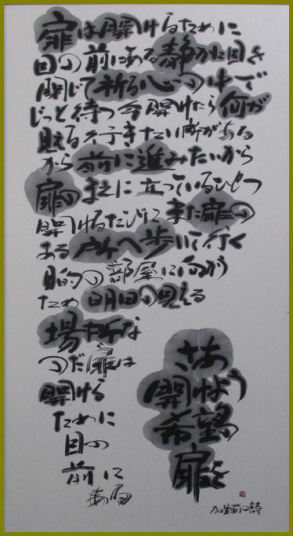 扉は開けるために
目の前にある静かに目を
閉じて祈る心の中で
じっと待つ今開けたら何が
見える行きたい所がある
から前に進みたいから
扉のまえに立っているひとつ
開けるたびにまた扉の
ある方へ歩いて行く
目的の部屋に向かう
ため明日の見える
場所な
のだ扉は
開ける
ために
目の
前に
ある
さあ
開けよう
希望
扉を